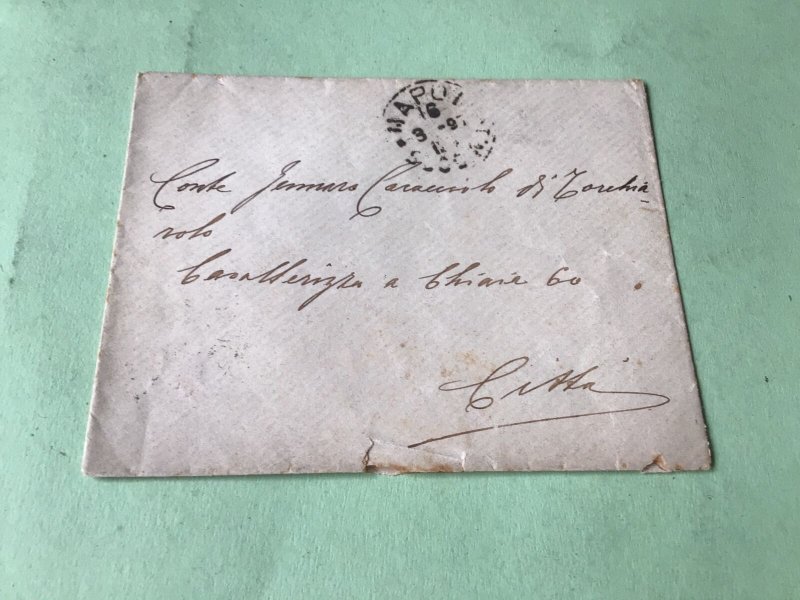 NAPOLI
16
9
Conte Jennaro Caracciolo di Torchia-
rolo
Cavallerizza a Chiaie 60
Città